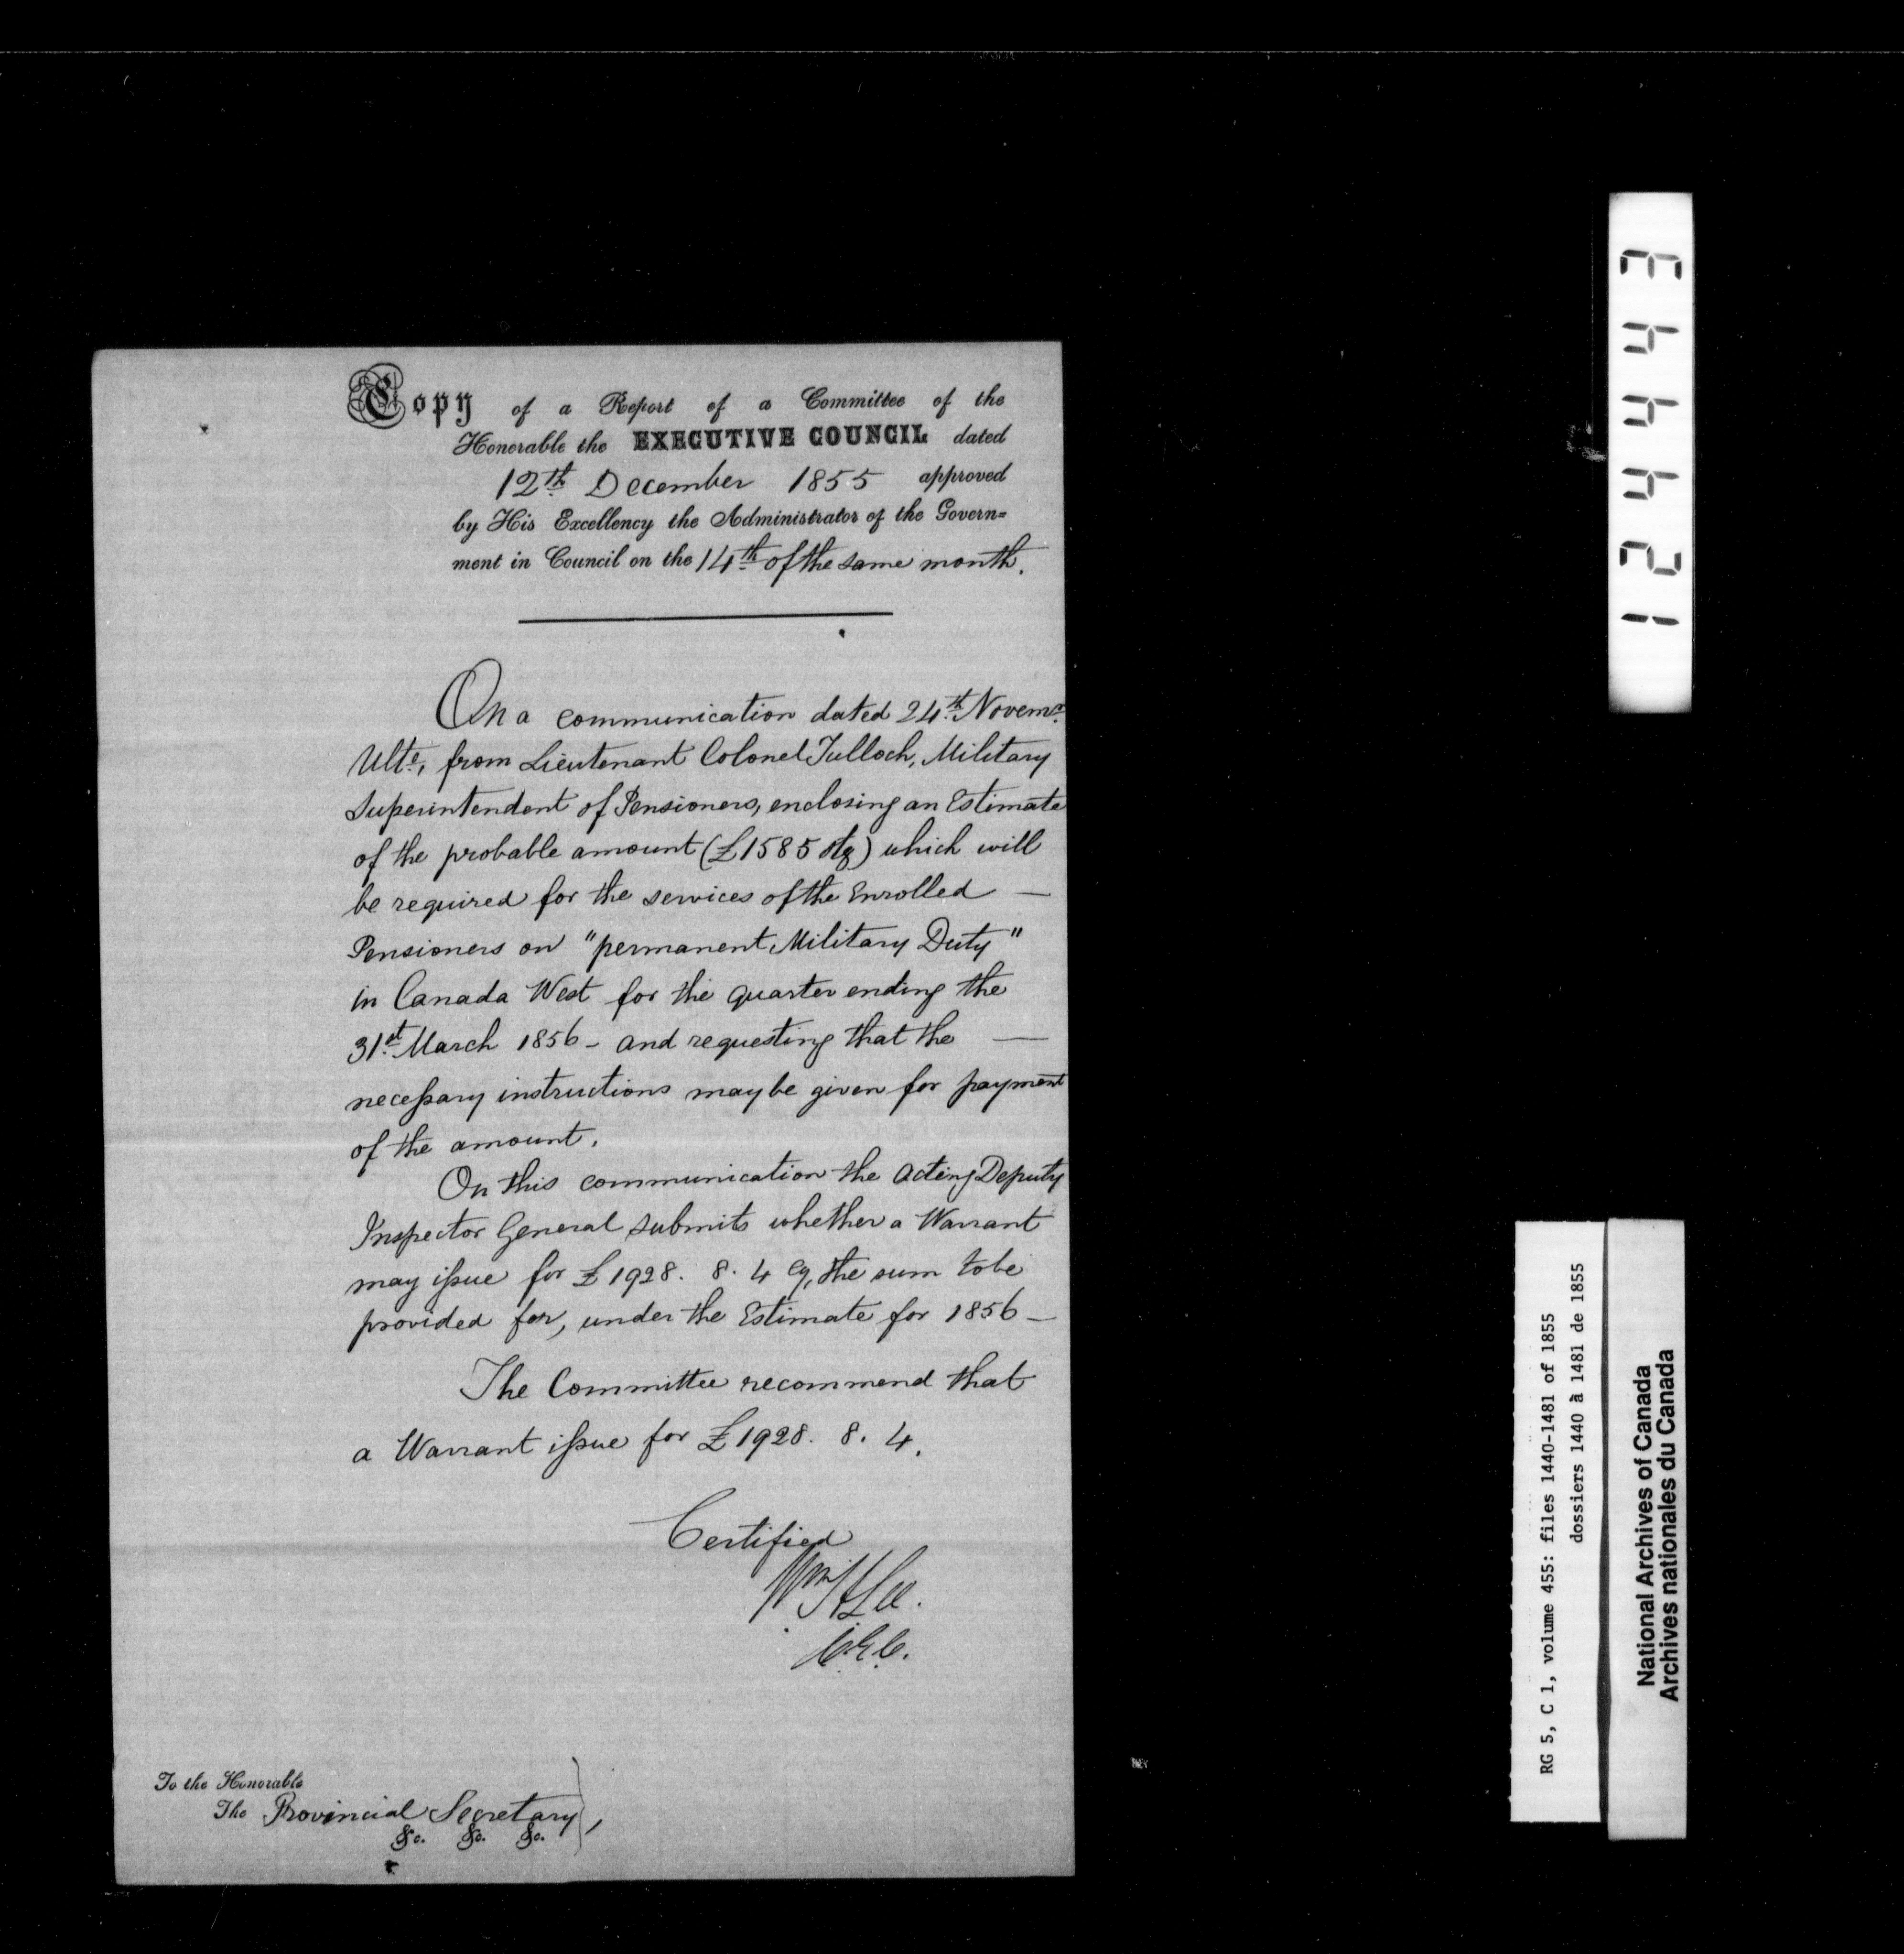 Copy of a Report of a Committee of the
Honorable the EXECUTIVE COUNCIL dated
12th December 1855 approved
by His Excellency the Administrator of the Govern=
ment in Council on the 14th of the same month.
On a communication dated 24th Novemr
Ulto, from Lieutenant Colonel Tulloch, Military
Superintendent of Pensioners, enclosing an Estimate
of the probable amount (£1585 Stg) which will
be required for the services of the Enrolled —
Pensioners on "permanent Military Duty"
in Canada West for the quarter ending the
31st March 1856 - and requesting that the —
necessary instructions may be given for payment
of the amount.
On this communication the Acting Deputy
Inspector General submits whether a Warrant
may issue for £1928. 8. 4 Cy, the sum to be
provided for, under the Estimate for 1856 -
The Committee recommend that
a Warrant issue for £1928. 8. 4.
Certified
Wm H Lee.
C.E.C.
To the Honorable
The Provincial Secretary,
&c. &c. &c.
124443
RG 5, C 1, volume 455: files 1440-1481 of 1855
dossiers 1440 à 1481 de 1855
National Archives of Canada
Archives nationales du Canada